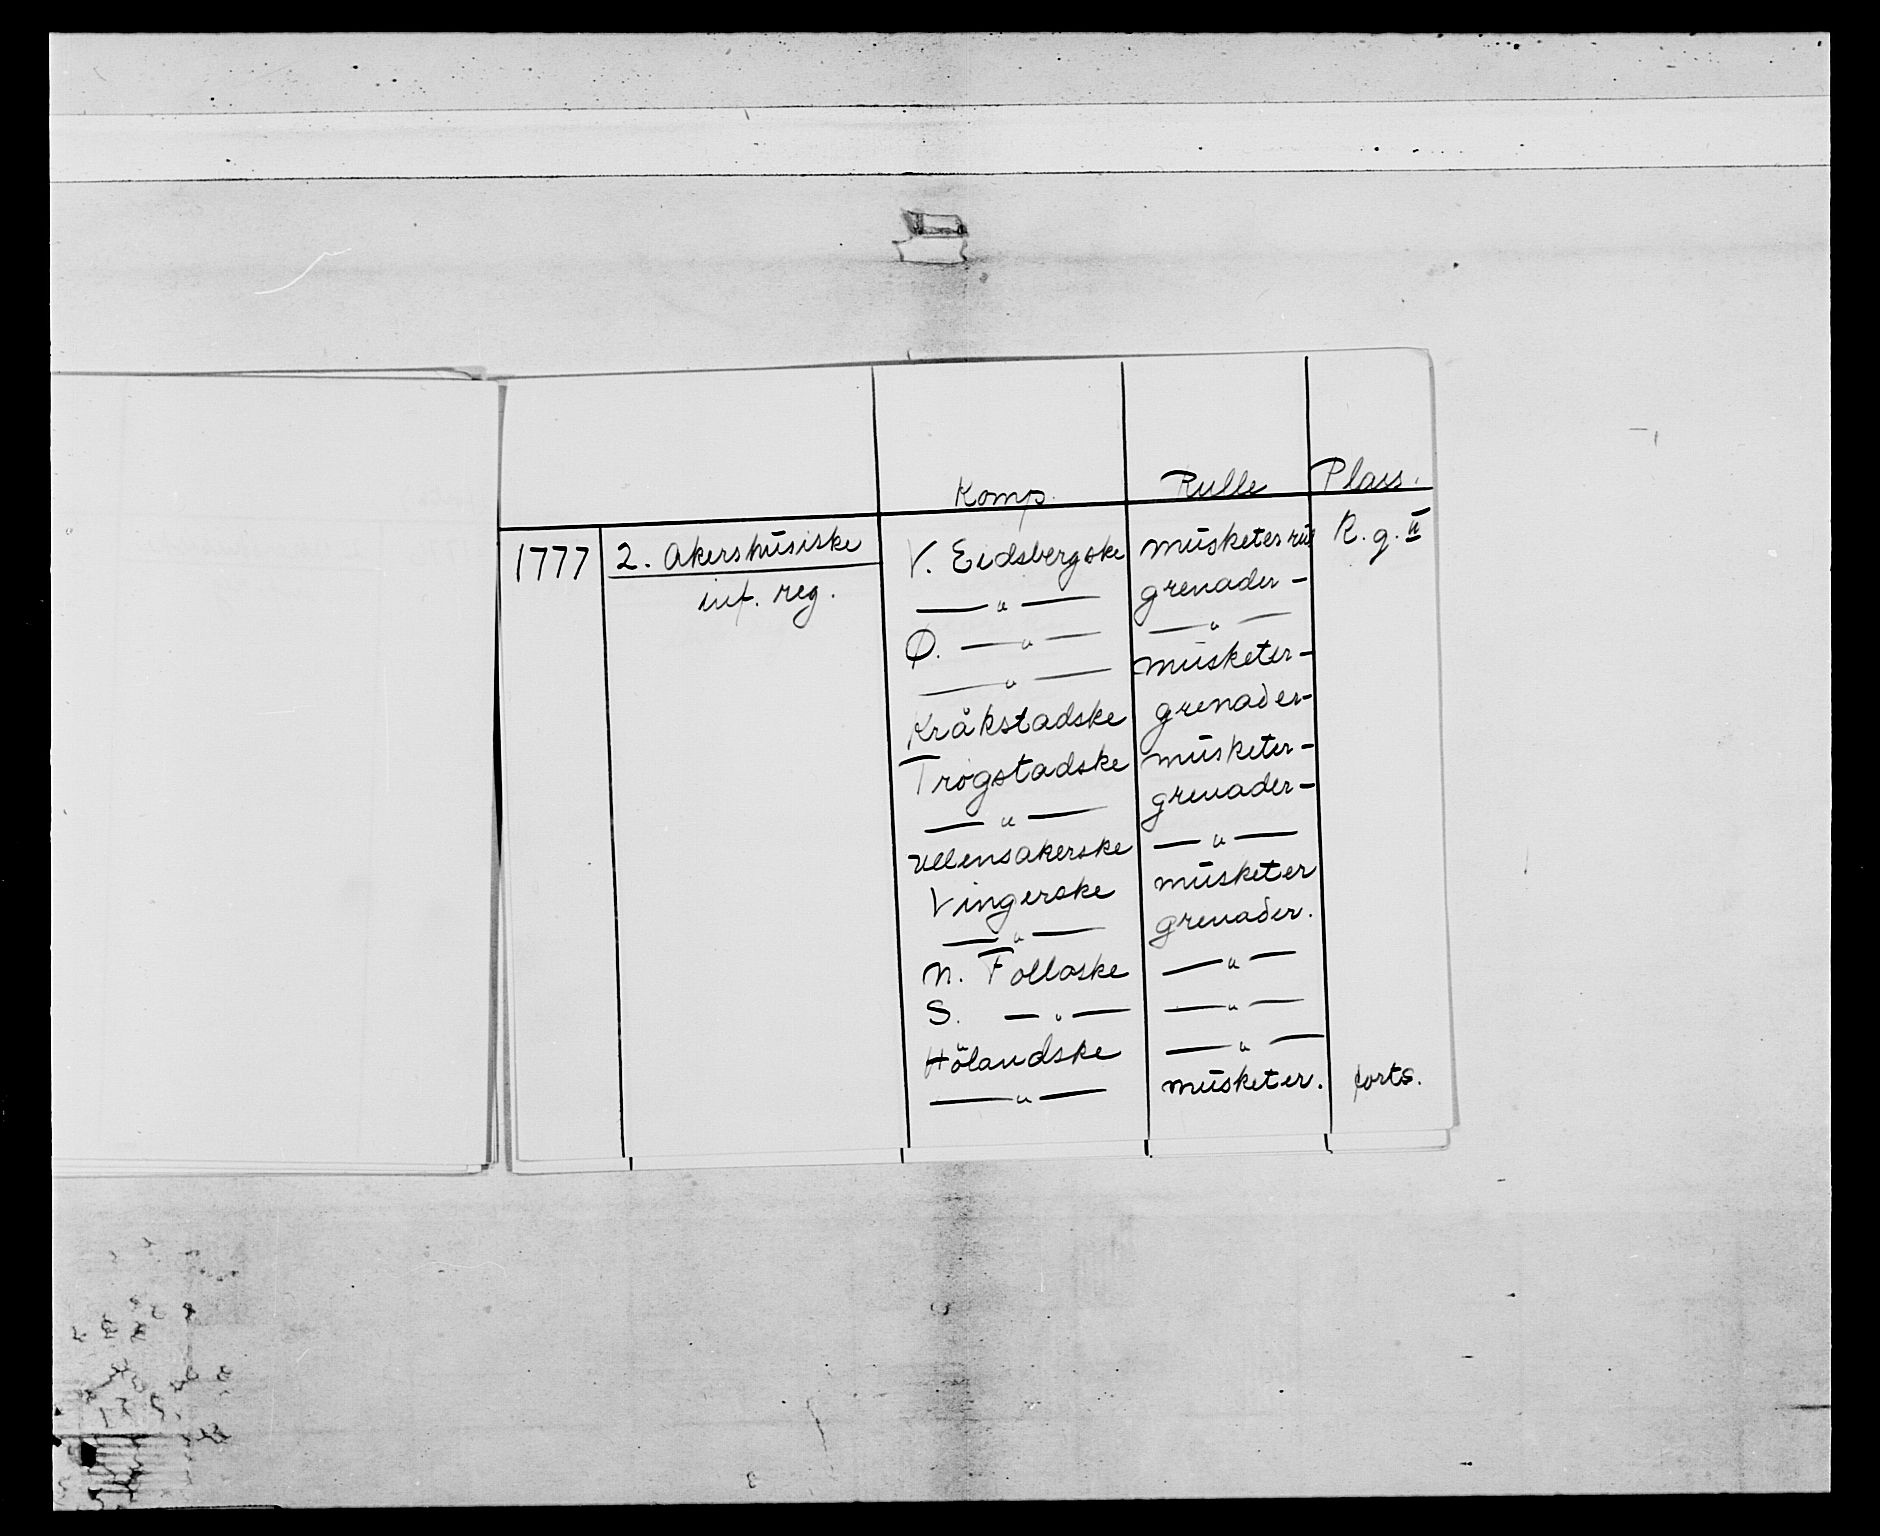 Komp. Rulle Plass.
1777 2. Akershusiske V. Eidsbergske musketer rul R. g. II
inf. reg. — " — grenader -
Ø. — " — — " —
— " — musketer -
Kråkstadske grenader -
Trøgstadske musketer -
— " — grenader -
Ullensakerske — " —
Vingerske musketer
— " — grenader.
N. Folloske — " —
S. — " — — " —
Hölandske — " —
— " — musketer. forts.